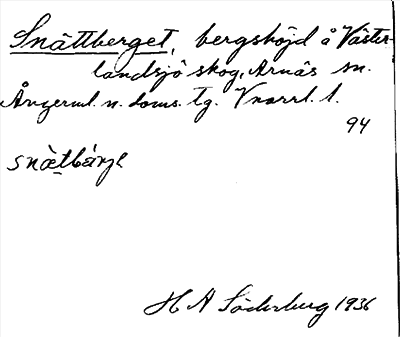 Snättberget, bergshöjd å Väster-
landsjö skog, Arnäs sn.
Ångerml. n. doms. tg. Vnorrl. l.
94
snætbárjɛ
H A Söderberg 1936